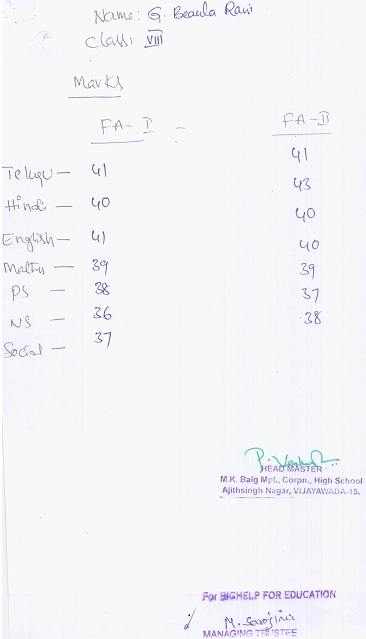 Name: G. Beaula Rani
Class: VIII
Marks
FA-I - FA-II
Telugu - 41 41
Hindi - 40 43
English - 41 40
Maths - 39 40
PS - 38 39
NS - 36 37
Social - 37 38
HEAD MASTER
M.K. Baig Mpl., Corpn., High School
Ajithsingh Nagar, VIJAYAWADA-15.
For BIGHELP FOR EDUCATION
M. Sarojini
MANAGING TRUSTEE